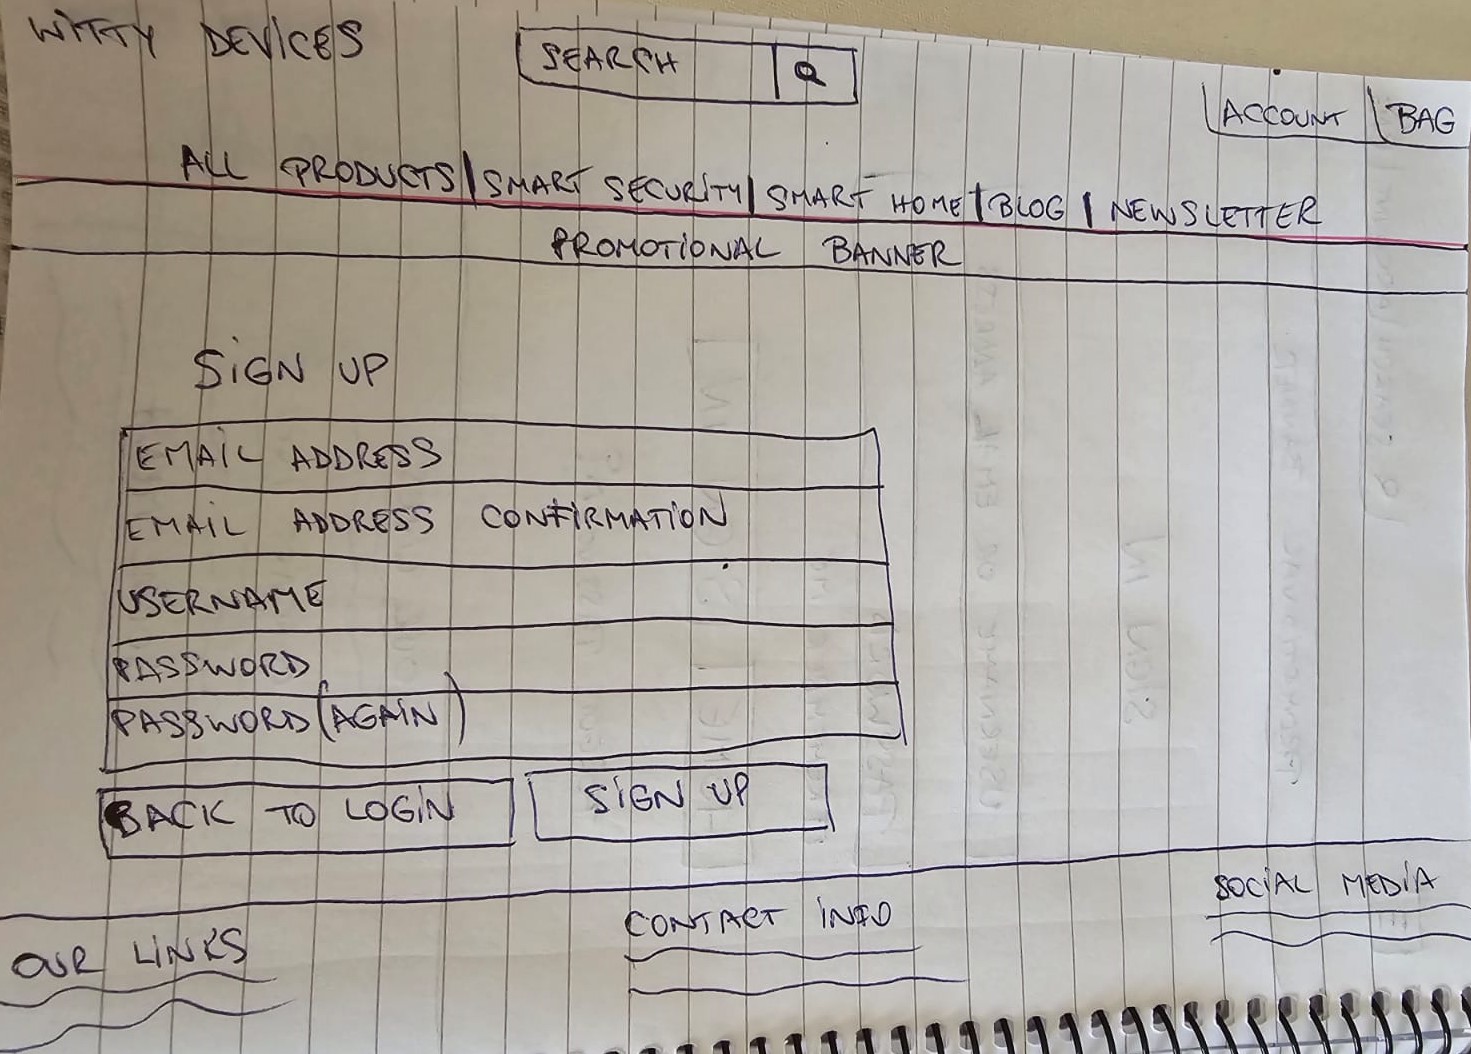 WITTY DEVICES
SEARCH
ACCOUNT | BAG
ALL PRODUCTS | SMART SECURITY | SMART HOME | BLOG | NEWSLETTER
PROMOTIONAL BANNER
SIGN UP
EMAIL ADDRESS
EMAIL ADDRESS CONFIRMATION
USERNAME
PASSWORD
PASSWORD (AGAIN)
BACK TO LOGIN
SIGN UP
OUR LINKS
CONTACT INFO
SOCIAL MEDIA